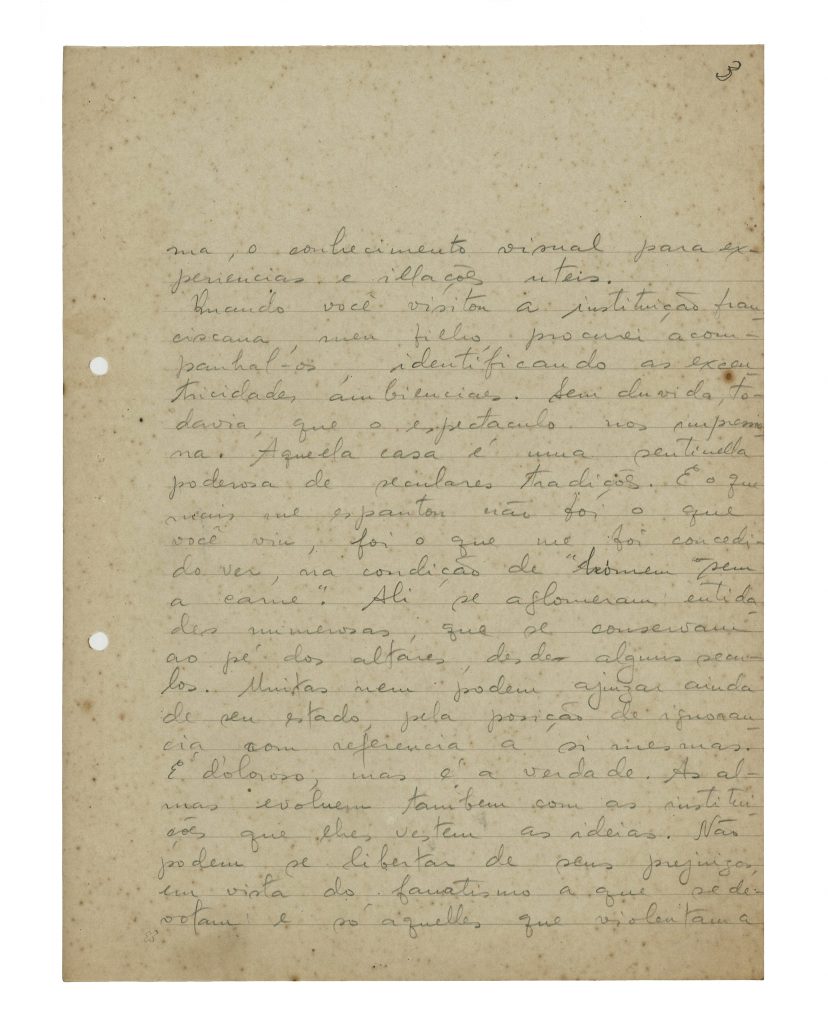 3
ma, o conhecimento visual para ex-
periencias e illações uteis.
Quando você visitou a instituição fran-
ciscana, meu filho, procurei acom-
panhal-os, identificando as excen-
tricidades ambienciaes. Sem duvida, to-
davia, que o espectaculo nos impressio-
na. Aquela casa é uma sentinella
poderosa de seculares tradições. E o que
mais me espantou não foi o que
você viu, foi o que me foi concedi-
do ver, na condição de "homem sem
a carne". Ali se aglomeram entida-
des numerosas, que se conservam
ao pé dos altares, desde alguns secu-
los. Muitas nem podem ajuizar ainda
de seu estado, pela posição de ignoran-
cia com referencia a si mesmas.
É doloroso, mas é a verdade. As al-
mas evoluem tambem com as institui-
ções que lhes vestem as ideias. Não
podem se libertar de seus prejuizos,
em vista do fanatismo a que se de-
votam e só aquelles que violentam a